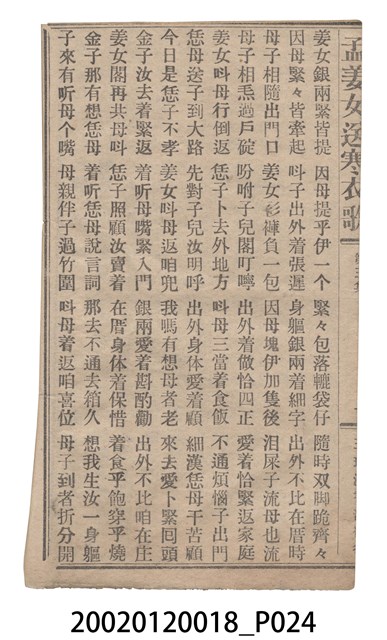 孟姜女送寒衣歌
姜女銀兩緊皆提 因母提乎伊一个 緊々包落轆袋仔 隨時双脚跪齊々
因母緊々皆牽起 呌子出外着張遲 身軀銀兩着細字 出外不比在厝時
母子相隨出門口 姜女衫褲負一包 因母塊伊加隻後 泪屎子流母也流
母子相焄過戶碇 吩咐子兒閣叮嚀 出外着做恰四正 愛着恰緊返家庭
姜女呌母行倒返 恁子卜去外地方 呌母三當着食飯 不通煩惱子出門
恁母送子到大路 先對子兒汝明呼 出外身体愛着顧 細漢恁母干苦顧
今日是恁子不孝 姜女呌母返咱兜 我嗎有想母者老 來去愛卜緊囘頭
金子汝去着緊返 着听母嘴緊入門 銀兩愛着斟酌勸 出外不比咱在庄
姜女閣再共母呌 恁子照顧汝賣着 在厝身体着保惜 着食乎飽穿乎燒
金子那有想恁母 着听恁母說言詞 那去不通去箱久 想我生汝一身軀
子來有听母个嘴 母親伴子過竹圍 呌母着返咱喜位 母子到者折分開
20020120018_P024